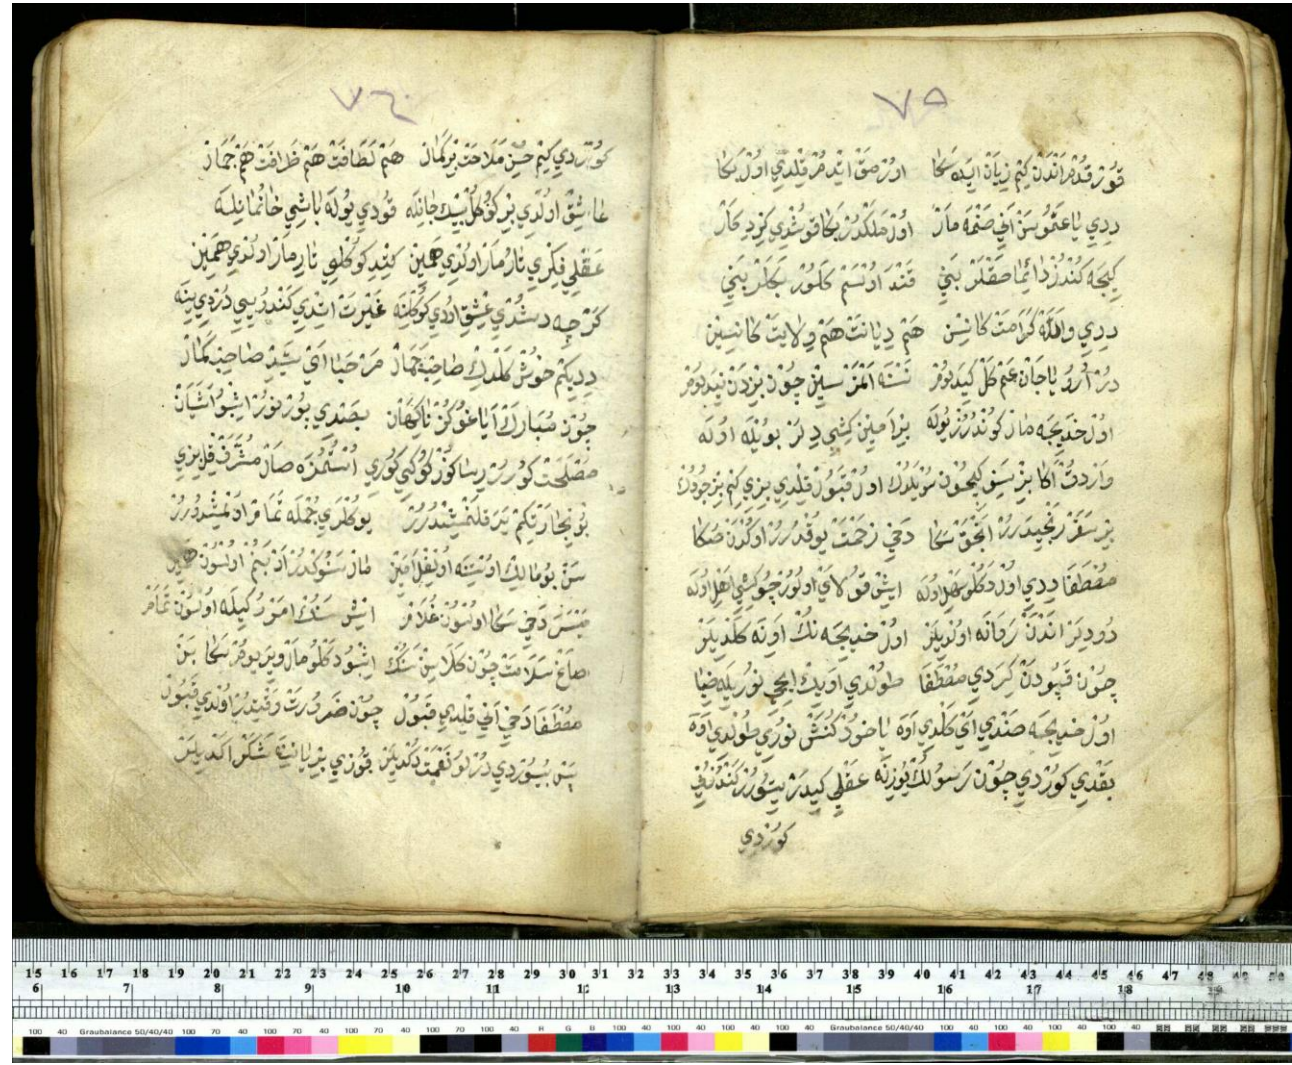 ٧٥
قورقدم اندن كم زيان ايده سكا اوزمق ايدم قيلدي اول بكا
ديدي يا عمو سن اني صنمه مار اول ملكدر بكا قوشدي كردكار
كيجه كندز دائما صقلر بني قنده اولسم كلور بكلر بني
ديدي والله كرامت كانسن هم ديانت هم ولايت كانسين
در اورو يا جان عم كل كيدلوم نسنه المزسين چون بزدن نيدلوم
اول خديجه مال كوندرر يوله بر امين كشي دلر بويله اوله
واردق اكا بز سنكيچون سويلدك اول قبول قيلدي بزي كم بز جودك
بر سفر رنجيدرر انجق سكا دخي زحمت يوقدرر اوكدن صكا
مصطفا ديدي اول دكلو سهل اوله ايش قولاي اولور چو كشي اهل اوله
دوديلر اندن روانه اولديلر اول خديجه نك اونه كلديلر
چون قپودن كردي مصطفا طولدي اويك ايچي نوريله ضيا
اول خديجه صندي اي كلدي اوه يا خود كنش نوري طولدي اوه
بقدي كوردي چون رسولك يوزينه عقلي كيدر يتورر كندزني
كوردي
٧٦
كوردي كم حسن ملاحت بركمال هم لطافت هم ظرافت هم جمال
عاشق اولدي بر كوكل بيك جانله قودي يوله باشي خانمانيله
عقلي فكري تارمار اولدي همين كندِ كوكلي تارمار اولدي همين
كرچه دشدي عشق اودي كوكلنه غيرت اندي كندويي دردي ينه
ديديكم خوش كلدك صاحب جمال مرحبا اي سيد صاحب كمال
چون مبارك اياغوكز ناكهان بصدي بو يوزنور اشبو اشيان
مصلحت كورر رسا كوز كوكي كوري استمزه صال مشرف قل بزي
بو تجارتكم يرقلنمشدرر يوكلري جمله تمام اولمشدورر
سن بو مالك اوستنه اولغل امين مال سنوكدر اد بنم اولسون همين
ميسره دخي سكا اولسون غلام ايش سنك امروكيله اولسون تمام
صاغ سلامت چون كلاسن سنك اشبو دكلو مال ويريورم سكا بن
مصطفا دخي اني قلدي قبول چون ضرورت وقتيدر اولدي قبول
پس بيوردي درلو نعمت دكديلر قوزي بريانيه شكر اكديلر